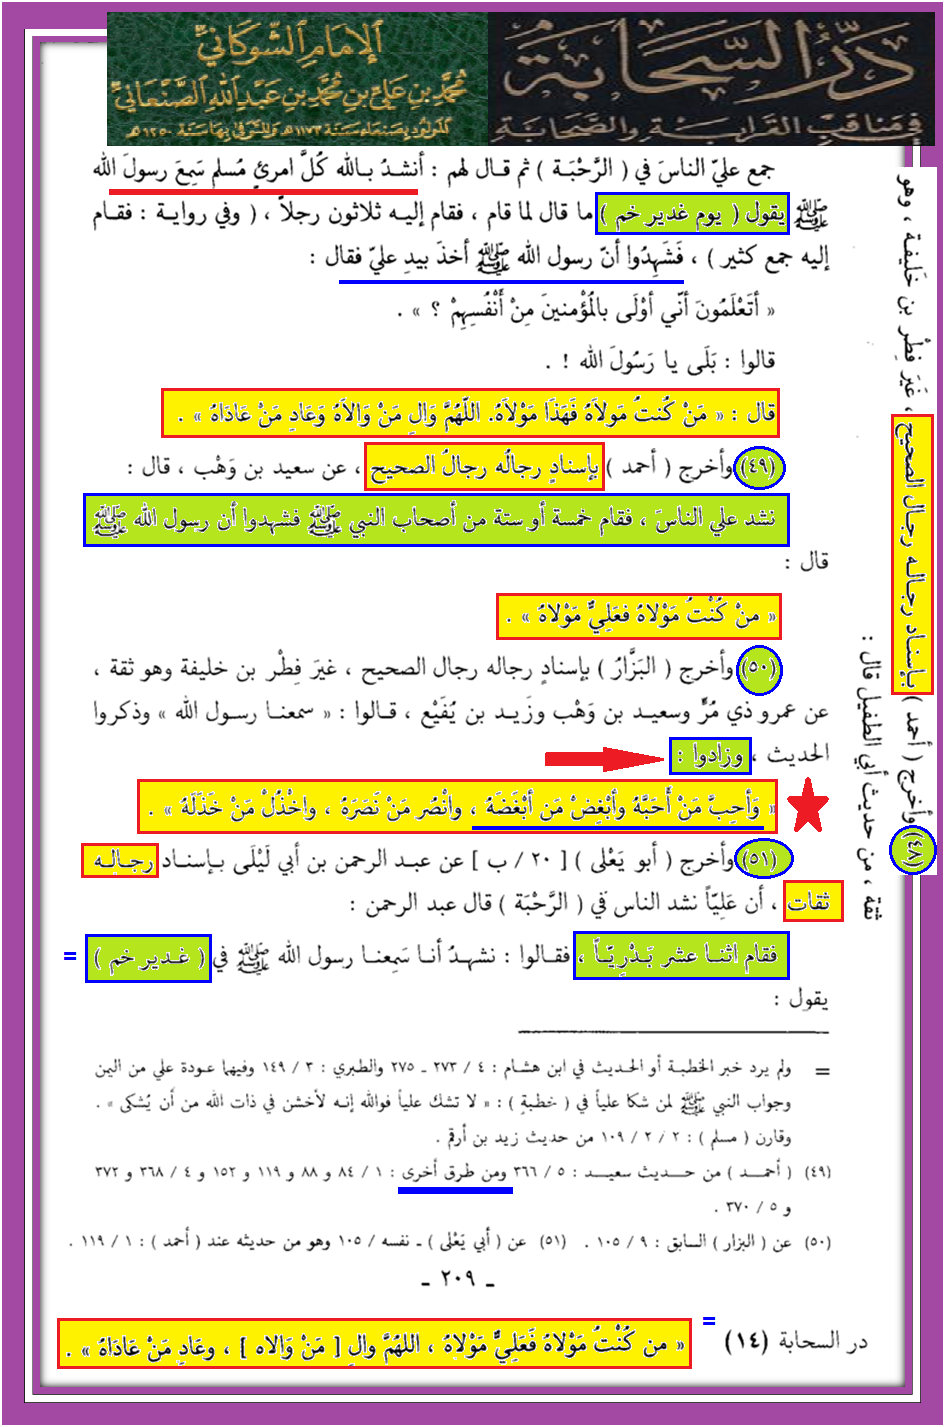 الإمام الشوكاني
محمد بن علي بن محمد بن عبد الله الصنعاني
المولود بصنعاء سنة ١١٧٣هـ والمتوفى بها سنة ١٢٥٠هـ
درّ السحابة
في مناقب القرابة والصحابة
(٤٨) وأخرج ( أحمد ) بإسناد رجاله رجال الصحيح ، غَيَر فِطْر بن خَليفة ، وهو
ثقة ، من حديث أبي الطفيل قال :
جمع عليّ الناسَ في ( الرَّحْبَة ) ثم قال لهم : أنشدُ بالله كُلَّ امرئٍ مُسلمٍ سَمِعَ رسولَ الله
ﷺ يقول ( يوم غدير خم ) ما قال لما قام ، فقام إليه ثلاثون رجلاً ، ( وفي رواية : فقام
إليه جمع كثير ) ، فَشَهِدُوا أنّ رسول الله ﷺ أخذَ بيدِ عليّ فقال :
« أَتَعْلَمُونَ أنّي أوْلَى بالمُؤْمنينَ مِنْ أَنْفُسِهِمْ ؟ » .
قالوا : بَلَى يا رَسُولَ الله ! .
قال : « مَنْ كُنتُ مَولاَهُ فَهَذَا مَوْلاَهُ. اللّهُمَّ وَالِ مَنْ وَالاَهُ وَعَادِ مَنْ عَادَاهُ » .
(٤٩) وأخرج ( أحمد ) بإسنادٍ رجالُه رجالُ الصحيح ، عن سعيد بن وَهْب ، قال :
نشد علي الناسَ ، فقام خمسة أو ستة من أصحاب النبي ﷺ فشهدوا أن رسول الله ﷺ
قال :
« منْ كُنْتُ مَوْلاهُ فعَلِيٌّ مَوْلاهُ » .
(٥٠) وأخرج ( البَزَّارُ ) بإسنادٍ رجاله رجال الصحيح ، غيرَ فِطْر بن خليفة وهو ثقة ،
عن عمرو ذي مُرٍّ وسعيد بن وَهْب وزَيد بن يُثَيْع ، قالوا : « سمعنا رسول الله » وذكروا
الحديث ، وزادوا :
« وَأحِبَّ مَنْ أَحَبَّهُ وأبْغِضْ مَن أبْغَضَهُ ، وانْصُر مَنْ نَصَرَهُ ، واخْذُلْ مَنْ خَذَلَهُ » .
(٥١) وأخرج ( أبو يَعْلى ) [ ٢٠ / ب ] عن عبد الرحمن بن أبي لَيْلَى بإسناد رجاله
ثقات ، أن عَلِيّاً نشد الناس في ( الرَّحْبَة ) قال عبد الرحمن :
فقام اثنا عشر بَدْرِيّاً ، فقالوا : نشهدُ أنا سَمِعنا رسول الله ﷺ في ( غدير خم ) =
يقول :
= ولم يرد خبر الخطبة أو الحديث في ابن هشام : ٤ / ٢٧٣ ـ ٢٧٥ والطبري : ٣ / ١٤٩ وفيهما عودة علي من اليمن
وجواب النبي ﷺ لمن شكا علياً في ( خطبةٍ ) : « لا تشك علياً فوالله إنه لأخشن في ذات الله من أن يُشكى » .
وقارن ( مسلم ) : ٢ / ٢ / ١٠٩ من حديث زيد بن أرقم .
(٤٩) ( أحمد ) من حديث سعيد : ٥ / ٣٦٦ ومن طرق أخرى : ١ / ٨٤ و ٨٨ و ١١٩ و ١٥٢ و ٤ / ٣٦٨ و ٣٧٢
و ٥ / ٣٧٠ .
(٥٠) عن ( البزار ) السابق : ٩ / ١٠٥ . (٥١) عن ( أبي يَعْلى ) ـ نفسه / ١٠٥ وهو من حديثه عند ( أحمد ) : ١ / ١١٩ .
ـ ٢٠٩ ـ
در السحابة (١٤)
= « من كُنْتُ مَوْلاهُ فَعَلِيٌّ مَوْلاهُ ، اللهُمَّ والِ [ مَنْ وَالاه ] ، وعَادِ مَنْ عَادَاهُ » .